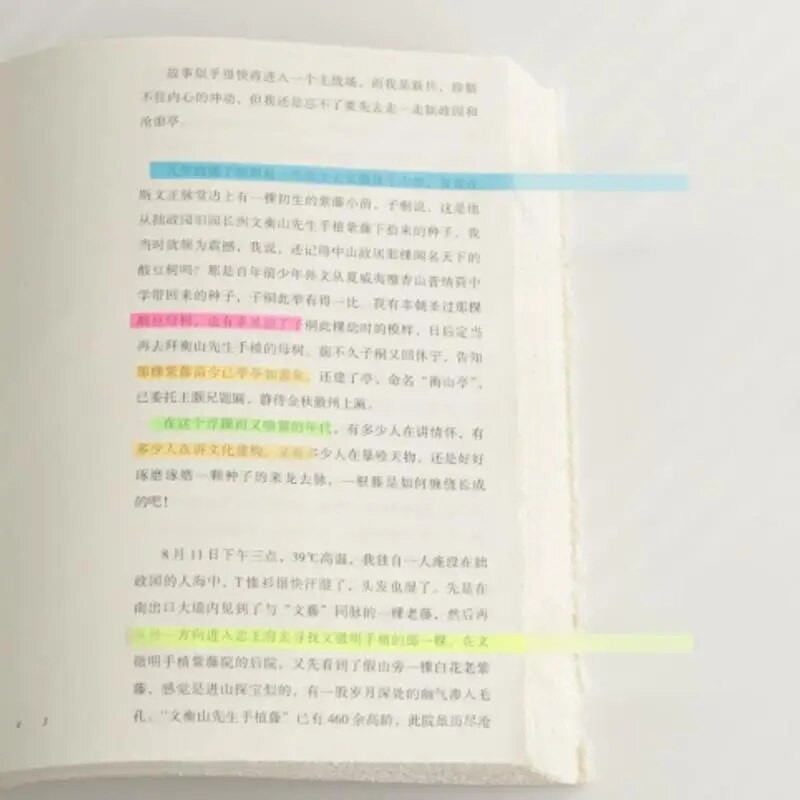 故事似乎很快将进入一个主战场,而我是
不住内心的冲动,但我还是忘不了要先去走一走拙政园和
沧浪亭。
斯文正脉堂边上有一棵初生的紫藤小苗,子桐说,这是他
从拙政园旧园长洲文衡山先生手植紫藤下拾来的种子。我
当时就颇为震撼,我说,还记得中山故居那棵闻名天下的
酸豆树吗?那是百年前少年孙文从夏威夷檀香山普纳荷中
学带回来的种子,子桐此举有得一比。我有幸朝圣过那棵
酸豆母树,也有幸见证了子桐此棵幼时的模样,日后定当
再去拜衡山先生手植的母树。前不久子桐又回休宁,告知
那棵紫藤苗今已亭亭如盖矣,还建了亭,命名“衡山亭”,
已委托王骥兄题匾,静待金秋徽州上匾。
在这个浮躁而又喧嚣的年代,有多少人在讲情怀,有
多少人在讲文化建构,又有多少人在暴殄天物,还是好好
琢磨琢磨一颗种子的来龙去脉,一根藤是如何缠绕长成
的吧!
8月11日下午三点,39℃高温,我独自一人淹没在拙
政园的人海中,T恤衫很快汗湿了,头发也湿了。先是在
南出口大墙内见到了与“文藤”同脉的一棵老藤,然后再
从另一方向进入忠王府去寻找文徵明手植的那一棵。在文
徵明手植紫藤院的后院,又先看到了假山旁一棵白花老紫
藤,感觉是进山探宝似的,有一股岁月深处的幽气渗入毛
孔。“文衡山先生手植藤”已有460余高龄,此院虽历尽沧